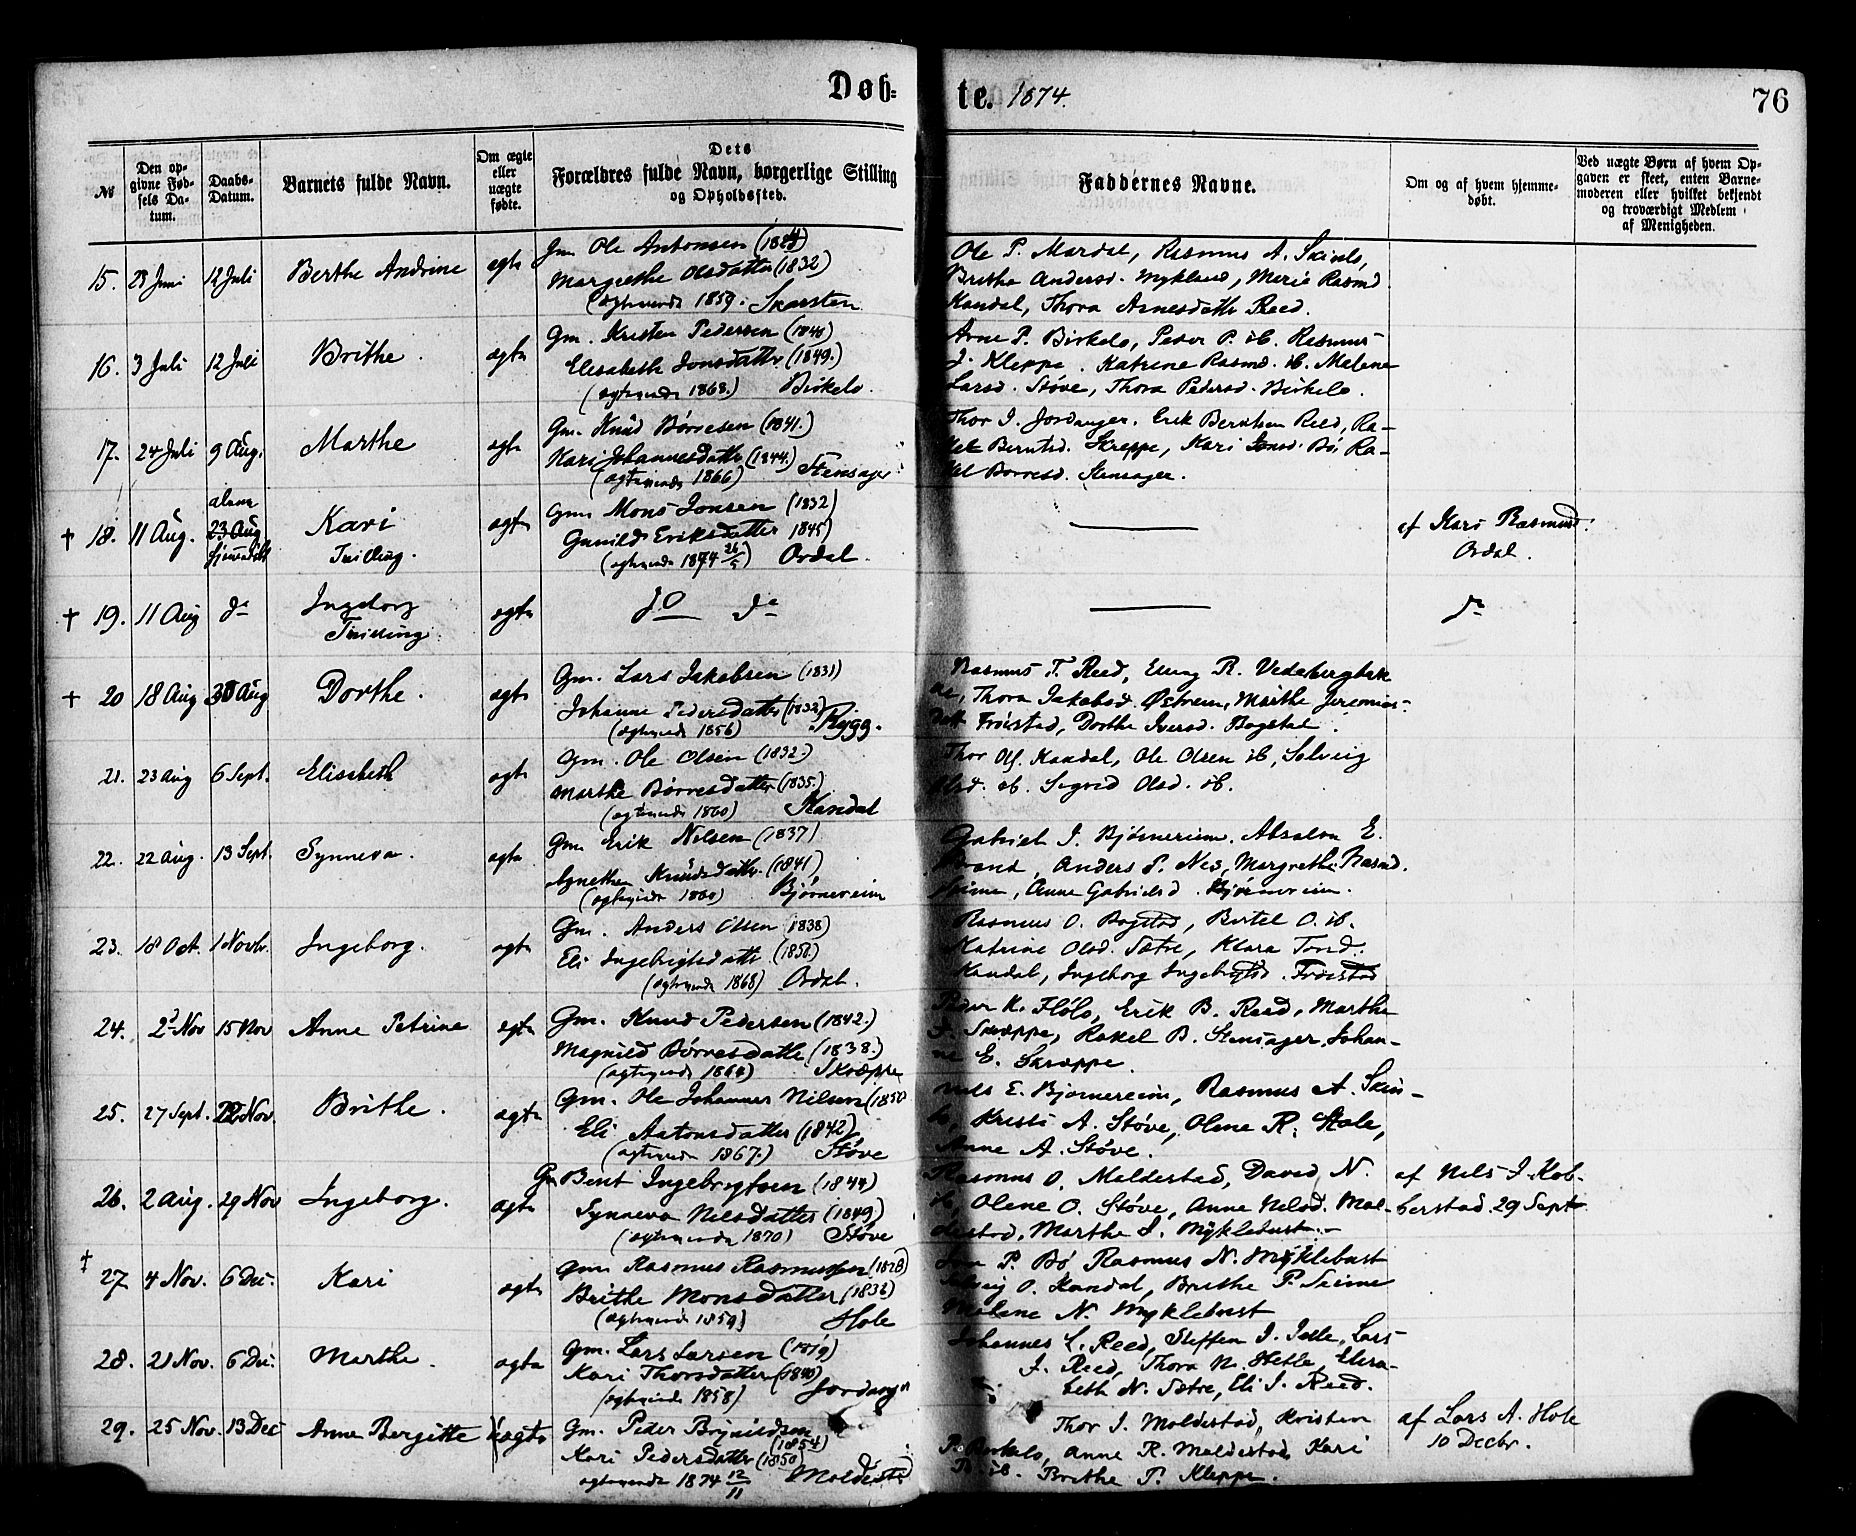 Døb-
te. 1874.
76
№
Den opgivne Fødsels Datum.
Daabs-Datum.
Barnets fulde Navn.
Om ægte eller uægte fødte.
Dets Forældres fulde Navn, borgerlige Stilling og Opholdssted.
Faddernes Navne.
Om og af hvem hjemmedøbt.
Ved uægte Børn af hvem Opgaven er skeet, enten Barnemoderen eller hvilket bekjendt og troværdigt Medlem af Menigheden.
15. 28 Juni 12 Juli Berthe Andrine egte Gm. Ole Antonsen
Margrethe Olsdatter (1832)
(egteviede 1859. Skarsten
Ole P. Mardal, Rasmus A.
Brithe Andersd. Mykland, Marie Rasmd
Kandal, Thora Arnesdatter Reed.
16. 3 Juli 12 Juli Brithe. egte Gm. Kristen Pedersen (1840)
Elisabeth Jonsdatter (1849.)
(egteviede 1868.) Birkelo.
Arne P. Birkelo, Peder P. ib. Rasmus
J. Kleppe. Katrine Rasmd. ib. Malene
Larsd. Støve, Thora Pedersd. Birkelo.
17. 24 Juli 9 Aug. Marthe egte Gm. Knud Børresen (1841.)
Kari Johannesdatter (1844.)
(egteviede 1866) Stensager
Thor I. Jordanger. Erik Berntsen Reed, Ra-
kel Berntsd. Skreppe, Kari Bø, Ra-
kel Borresd. Stensager.
† 18. 11 Aug. 23 Aug hjemmedøbt Kari Tvilling. egte Gm. Mons Jonsen (1832
Gunild Eriksdatter 1845)
(egteviede 1874 26/5) Ordal.
af Kari Rasmusd.
Ordal.
† 19. 11 Aug do Ingeborg Tvilling. egte do do
do
† 20 18 Aug 30 Aug Dorthe. egte Gm. Lars Jakobsen (1831)
Johanne Pedersdatter
(egteviede 1856) Rygg.
Rasmus T. Reed, Elling R. Vedebergbak
ke, Thora Jakobsd. Østrem, Marthe Jeremias-
datt. Frøistad, Dorthe Iversd. Bogstad.
21. 23 Aug 6 Sept. Elisabeth egte Gm. Ole Olsen (1832.)
Marthe Børresdatter (1835.)
(egteviede 1860) Kandal
Thor Kandal, Ole Olsen ib, Solveig
Olsd. ib. Sigrid Olsd. ib.
22. 22 Aug. 13 Sept. Synneva. egte Gm. Erik Nilsen (1837)
Agnethe Knudsdatter. (1841)
(egteviede 1860) Bjørnereim
Gabriel I. Bjørnereim, Absalon E.
Strand, Anders P. Nes, Margrethe Rasmd.
Anne Gabrielsd. Bjørnereim.
23. 18 Oct. 1 Novb. Ingeborg. egte Gm. Anders Olsen (1838)
Eli Ingebrigtsdatt.
(egteviede 1868) Ordal.
Rasmus O. Bogstad, Bertel O. ib.
Katrine Olsd. Sætre, Klara
Kandal, Ingeborg Ingebrigtsd. Frøistad
24. 2 Nov 15 Nov Anne Petrine egte Gm. Knud Pedersen (1842.)
Magnild Børresdatte (1838.)
(egteviede 1864) Skreppe
Peder K. FløLo, Erik B. Reed, Marthe
Skreppe, Rakel B. Stensager, Johan-
ne E. Skreppe.
25. 27 Sept. 22 Nov. Brithe. egte Gm. Ole Johannes Nilsen (1850
Eli Antonsdatter (1842)
(egteviede 1867.) Støve
Nils E. Bjørnereim, Rasmus A.
Kristi A. Støve, Olene R. Hole,
Anne A. Støve.
26. 2 Aug. 29 Nov Ingeborg. egte Gm Bent Ingebrigtsen (1844)
Synneva Nilsdatter (1849)
(egteviede 1870) Støve
Rasmus O. Moldestad, David N.
ib, Olene O. Støve, Anne Nilsd. Mol-
destad, Marthe I. Myklebust.
af Nils I. Kob-
berstad. 29 Sept
† 27 4 Nov. 6 Dec. Kari egte Gm. Rasmus Rasmussen (1828)
Brithe Monsdatter
(egteviede 1859) Hole
P. Bø, Rasmus N. Myklebust
Solveig O. Kandal, Brithe P. Seime
Malene N. Myklebust
28. 21 Nov. 6 Dec. Marthe. egte Gm. Lars Larsen (1819)
Kari Thorsdatter (1840)
(egteviede 1858) Jordanger
Johannes L. Reed, Steffen I. Lars
J. Reed, Thora N. Hetle, Elisa-
beth N. Sætre, Eli I. Reed.
29. 25 Nov. 13 Dec Anne Bergitte egte Gm. Peder Brynildsen
(1854)
Kari Pedersdatter (1850)
egteviede 1874 12/11 Moldestad
Thor I. Moldestad, Kristen
P. Birkelo, Anne R. Moldestad, Kari
P. ib. Brithe P. Kleppe.
af Lars A. Hole
10 Decbr.